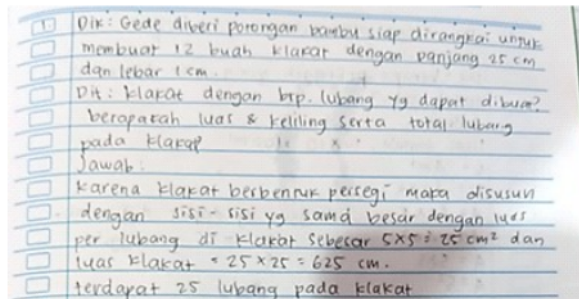 1 Dik: Gede diberi potongan bambu siap dirangkai untuk
membuat 12 buah klakat dengan panjang 25 cm
dan lebar 1 cm.
Dit: klakat dengan brp. lubang yg dapat dibuat?
berapakah luas & keliling serta total lubang
pada klakat
Jawab:
Karena klakat berbentuk persegi maka disusun
dengan sisi-sisi yg sama besar dengan luas
per lubang di klakat sebesar 5x5 = 25 cm² dan
luas klakat = 25 x 25 = 625 cm.
terdapat 25 lubang pada klakat